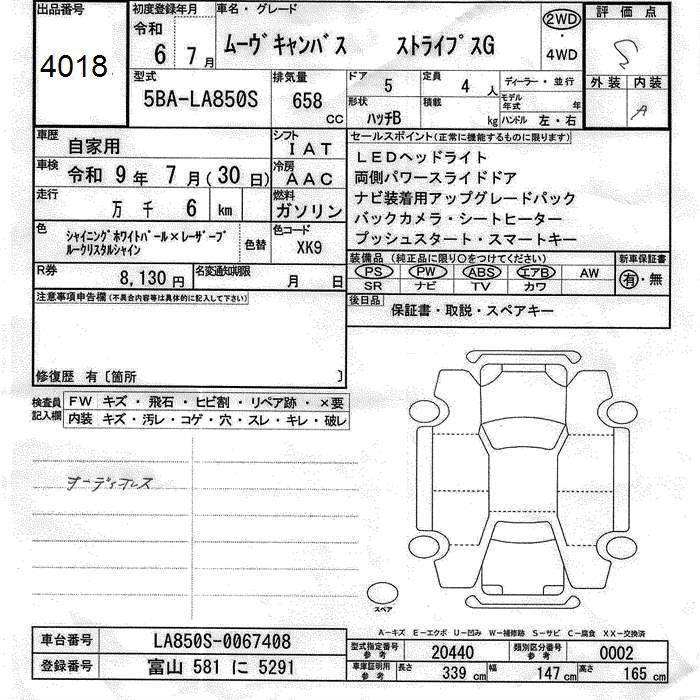 出品番号
4018
初度登録年月
令和
6 7月
車名・グレード
ムーヴキャンバス ストライプスG
2WD
・
4WD
評価点
S
外装 内装
A
型式
5BA-LA850S
排気量
658 CC
ドア 5
定員 4 人
ディーラー・並行
形状 ハッチB
積載 kg
モデル年式 年
ハンドル 左・右
車歴 自家用
シフト IAT
車検 令和 9 年 7 月(30日)
冷房 AAC
走行 万 千 6 km
燃料 ガソリン
色 シャイニングホワイトパール×レーザーブ
ルークリスタルシャイン
色替
色コード XK9
R券 8,130円
名変通知期限 月 日
セールスポイント(正常に機能するものに限ります)
LEDヘッドライト
両側パワースライドドア
ナビ装着用アップグレードパック
バックカメラ・シートヒーター
プッシュスタート・スマートキー
装備品(純正品に限り○をつけてください)
新車保証書
PS PW ABS エアB AW
SR ナビ TV カワ
有・無
後日品
保証書・取説・スペアキー
注意事項申告欄(不具合内容等は具体的に記入して下さい)
修復歴 有〔箇所 〕
検査員
記入欄
FW キズ・飛石・ヒビ割・リペア跡・×要
内装 キズ・汚レ・コゲ・穴・スレ・キレ・破レ
オーディオレス
スペア
A-キズ E-エクボ U-凹み W-補修跡 S-サビ C-腐食 XX-交換済
車台番号 LA850S-0067408
登録番号 富山 581 に 5291
型式指定番号
参考
20440
類別区分番号
参考
0002
車庫証明用
参考
長さ 339 cm 幅 147 cm 高さ 165 cm